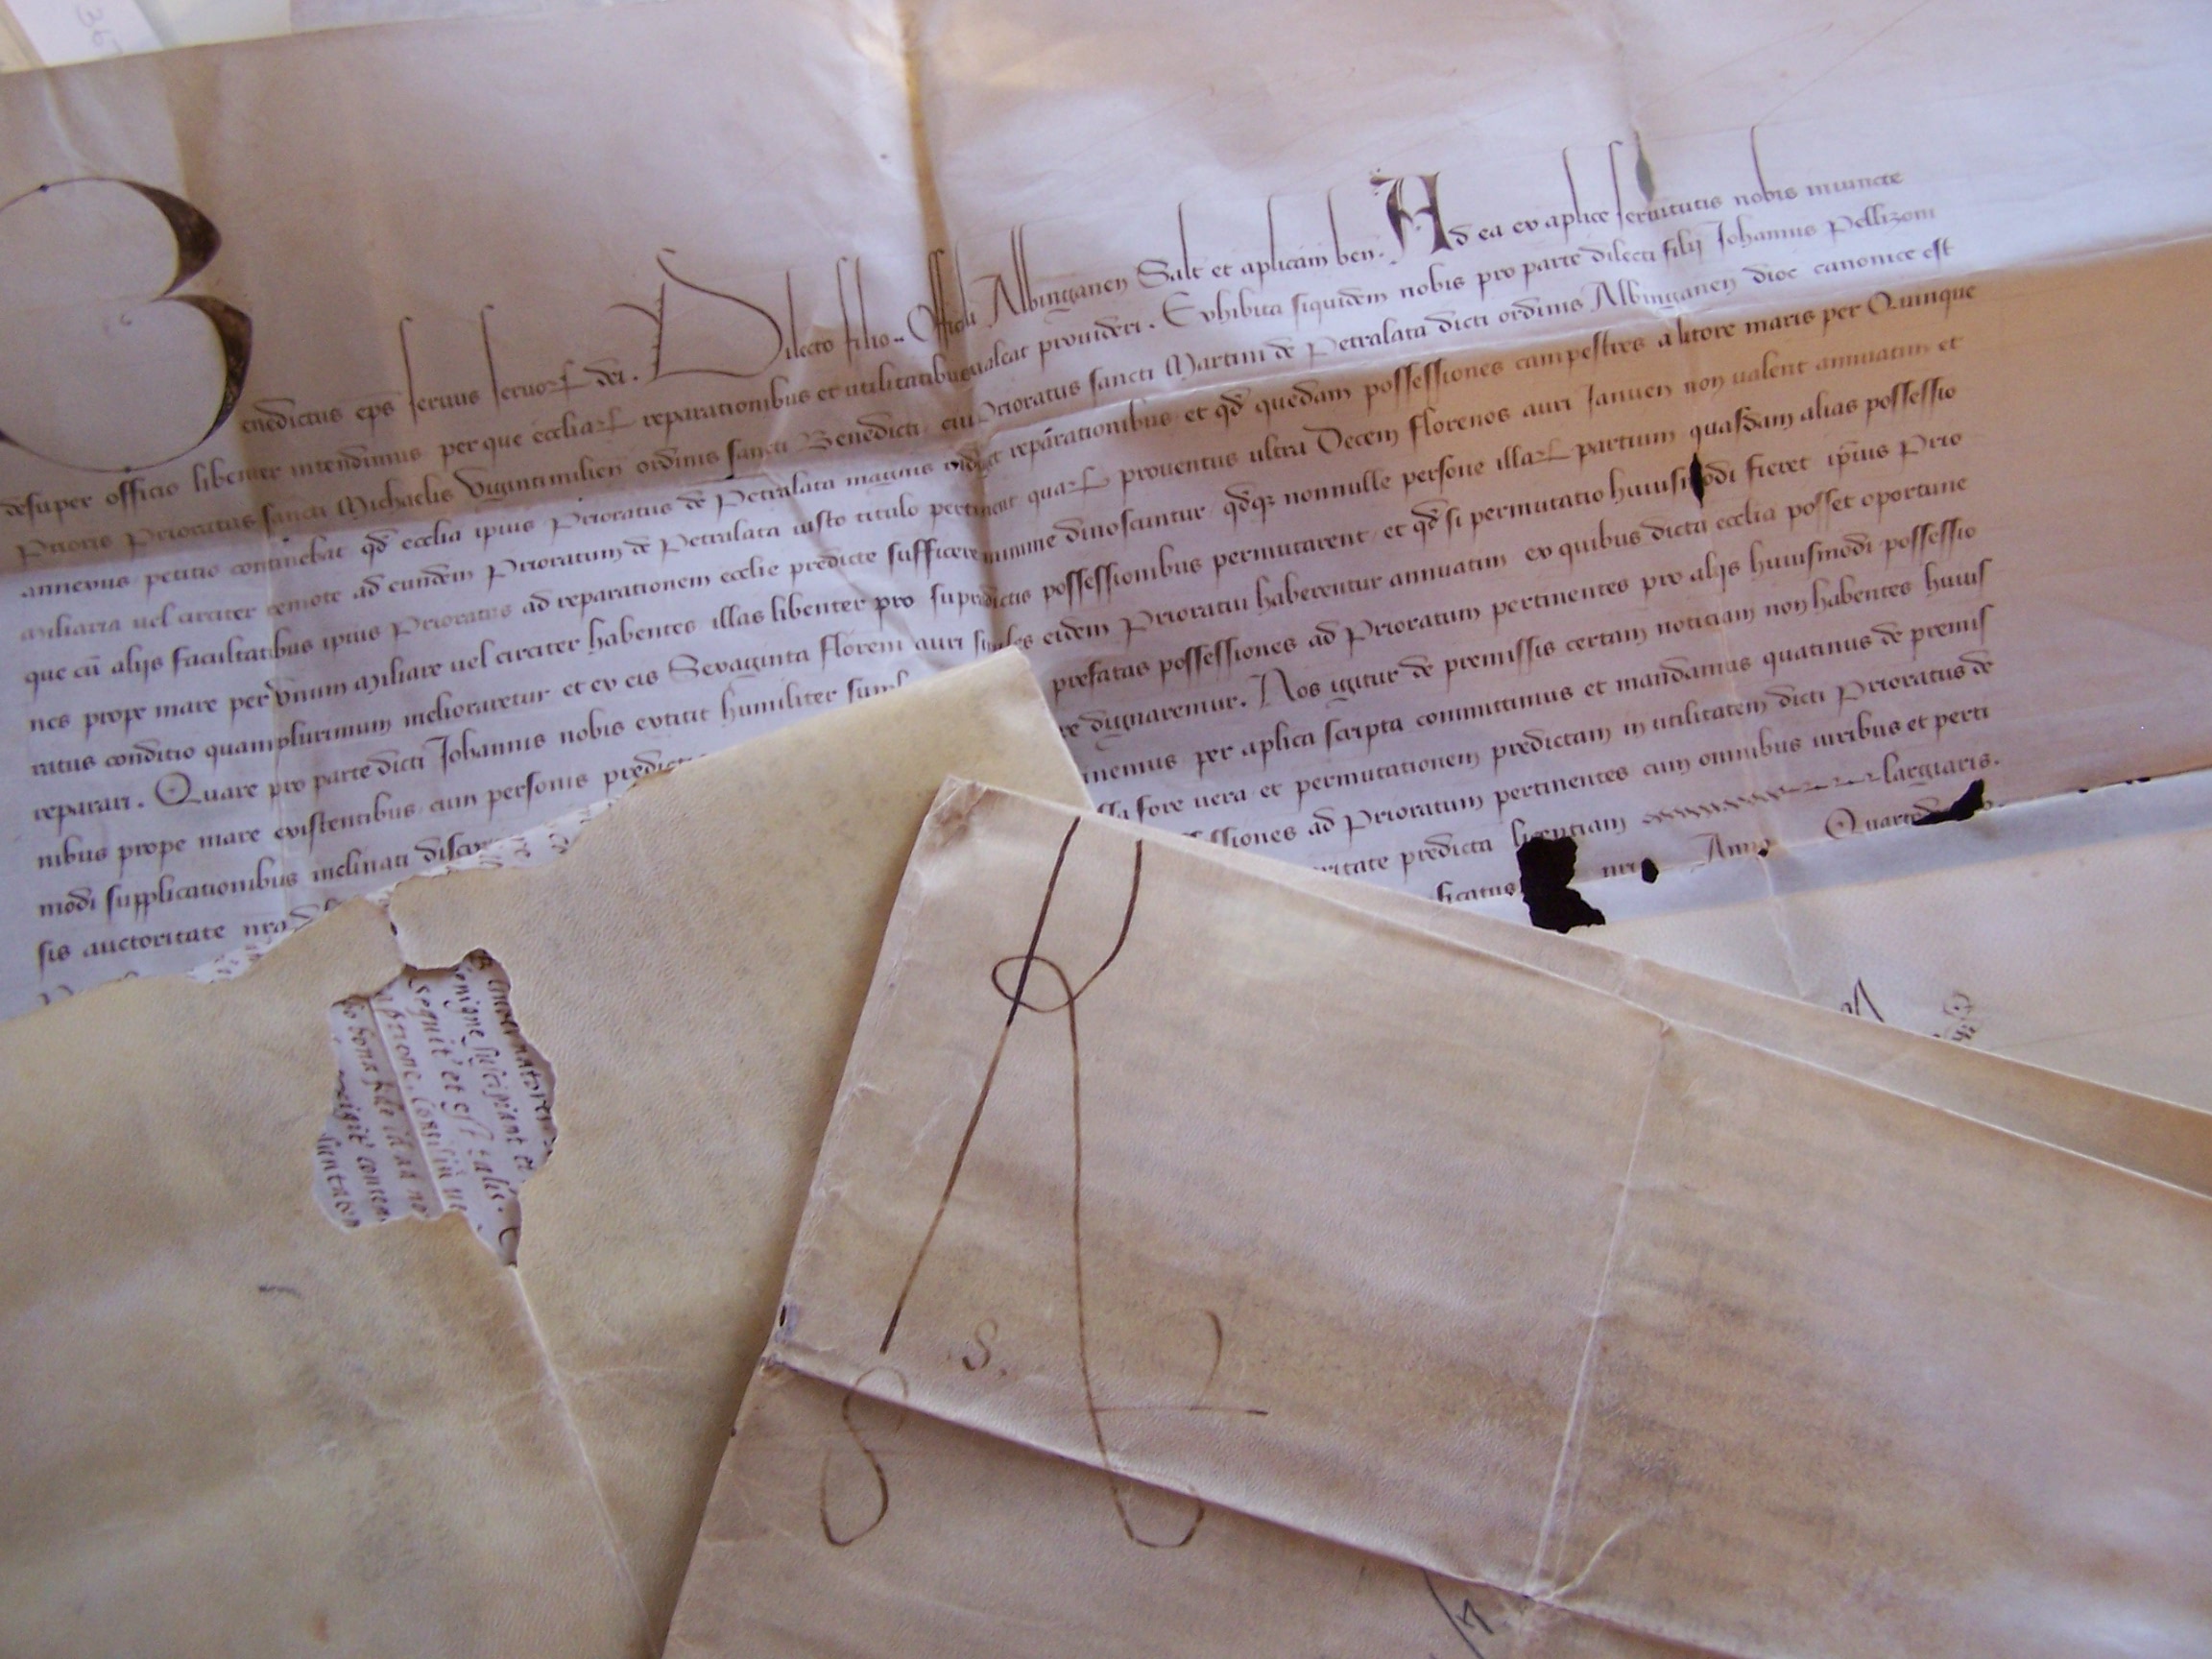 Benedictus eps seruus seruoꝝ dei. Dilecto filio .. Officiali Albinganen Salt et aplicam ben. Ad ea ex aplice seruitutis nobis iniuncte
desuper officio libenter intendimus per que eccliaꝝ reparationibus et utilitatibus ualeat prouideri. Exhibita siquidem nobis pro parte dilecti filij Johannis Pellizoni
Prioris Prioratus sancti Michaelis Vigintimilien ordinis sancti Benedicti cui Prioratus sancti Martini de Petralata dicti ordinis Albinganen dioc canonice est
annexus petitio continebat qd ecclia ipius Prioratus de Petralata magnis indiget reparationibus et qd quedam possessiones campestres a litore maris per Quinque
miliaria uel circiter remote ad eundem Prioratum de Petralata iusto titulo pertinent quaꝝ prouentus ultra Decem florenos auri Januen non ualent annuatim et
que cu alijs facultatibus ipius Prioratus ad reparationem ecclie predicte sufficere minime dinoscuntur qdqz nonnulle persone illaꝝ partium quasdam alias possessio
nes prope mare per Vnum miliare uel circiter habentes illas libenter pro supradictis possessionibus permutarent et qd si permutatio huiusmodi fieret ipius Prio
ratus conditio quamplurimum melioraretur et ex eis Sexaginta floreni auri similes eidem Prioratui haberentur annuatim ex quibus dicta ecclia posset oportune
reparari. Quare pro parte dicti Johannis nobis extitit humiliter suppl prefatas possessiones ad Prioratum pertinentes pro alijs huiusmodi possessio
nibus prope mare existentibus cum personis predictis re dignaremur. Nos igitur de premissis certam noticiam non habentes huius
modi supplicationibus inclinati discre inemus per aplica scripta committimus et mandamus quatinus de premis
sis auctoritate nra ssa fore uera et permutationem predictam in utilitatem dicti Prioratus de
ssiones ad Prioratum pertinentes cum omnibus iuribus et perti
ritate predicta licentiam largiaris.
ficatus nri Anno Quarto
enigne suscipiant et
sequit et est talis.
bona fide id ad no
S.